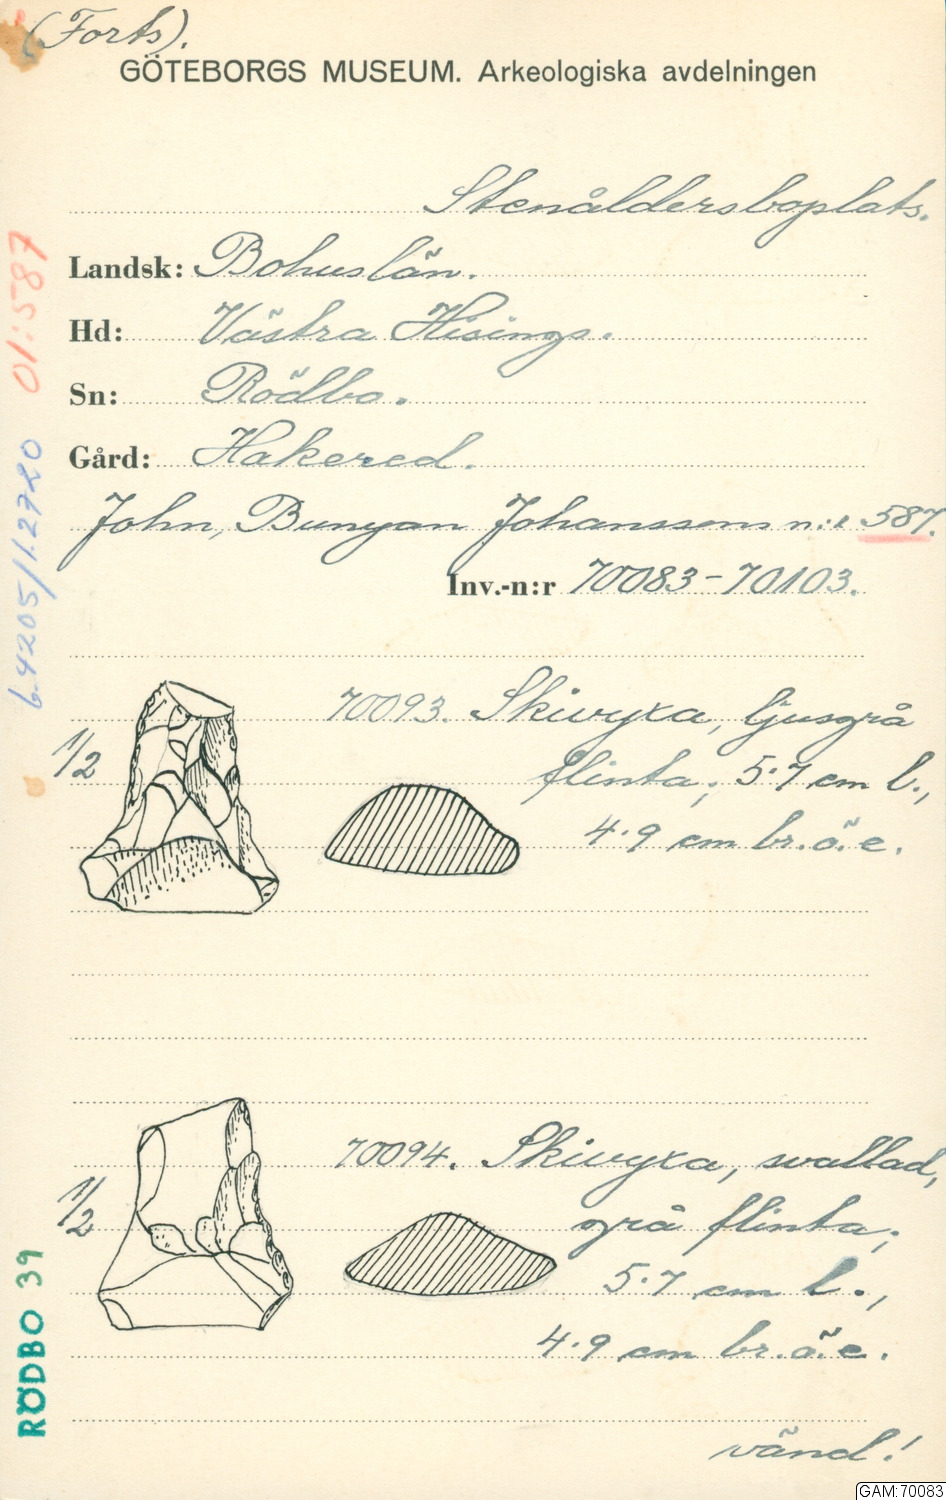 (Forts).
GÖTEBORGS MUSEUM. Arkeologiska avdelningen
Stenåldersboplats.
Landsk: Bohuslän.
Hd: Västra Hisings.
Sn: Rödbo.
Gård: Hakered.
John, Bunyan Johanssons n:r 587.
Inv.-n:r 70083-70103.
1/2
70093. Skivyxa, ljusgrå
flinta; 5.7 cm l.,
4.9 cm br. ö. e.
1/2
70094. Skivyxa, svallad,
grå flinta;
5.7 cm l.,
4.9 cm br. ö. e.
vänd!
01:587
6.4205/1.2720
RÖDBO 39
GAM:70083